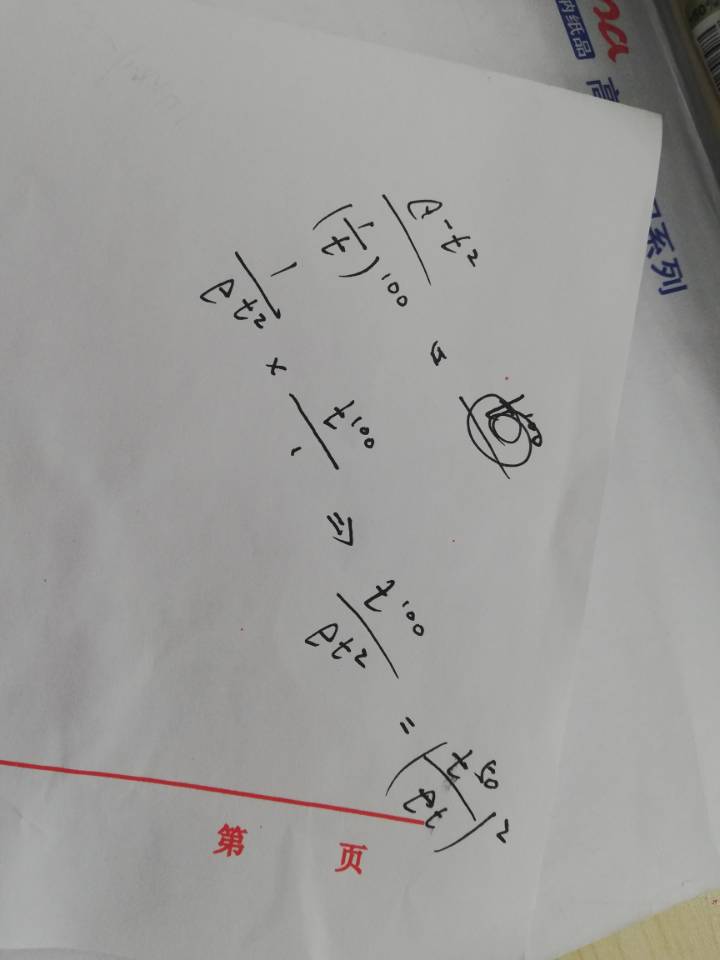 e^{-t^2} / (1/t)^{100} =
1 / e^{t^2} × t^{100} / 1 ⇒ t^{100} / e^{t^2} = (t^{50} / e^t)^2
第 页
纳纸品
系列